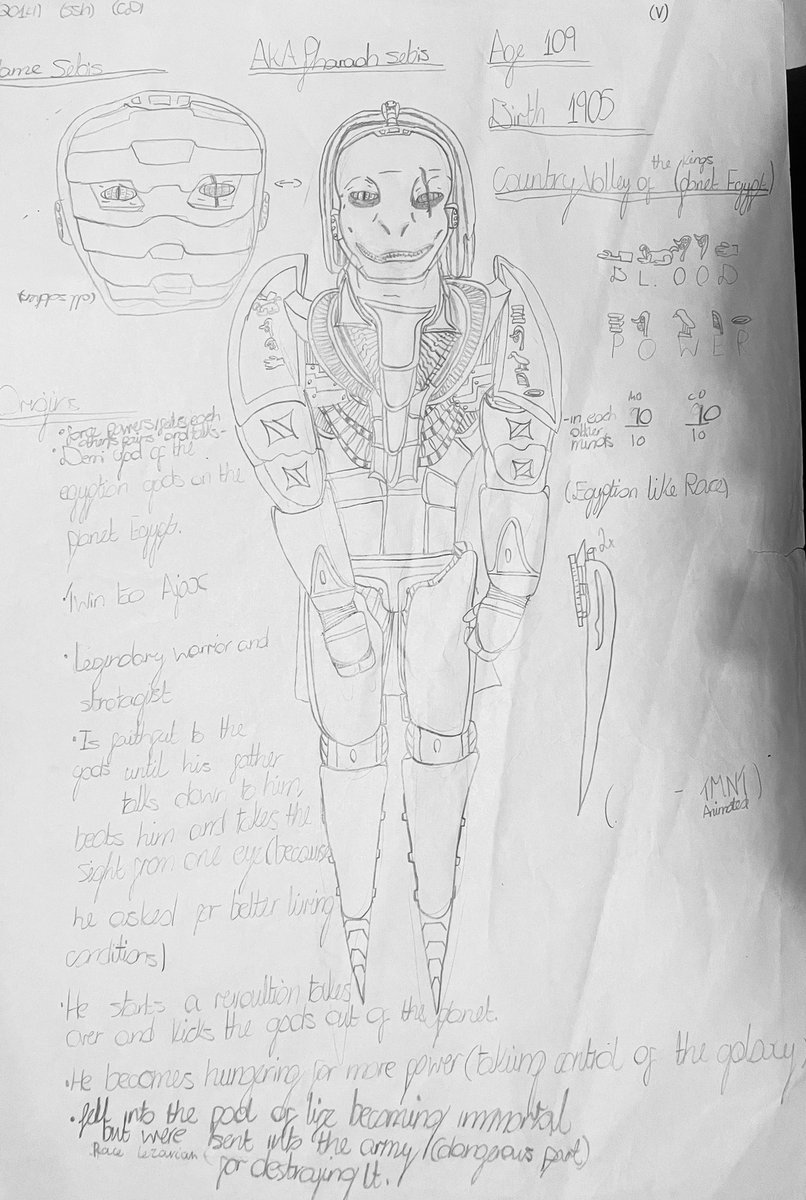 2014) (SSH) (CD)
(V)
Name Sebis
AKA Pharaoh Sebis
Age 109
Birth 1905
Country Valley of the Kings (planet Egypt)
B L O O D
P O W E R
- in each other minds
10
10
(Egyption like Race)
2x
( - TMNT)
Animated
Origins
• Demi god of the
egyption gods on the
planet Egypt.
• Twin to Ajax
• Legendary warrior and
stratagist
• Is faithful to the
gods until his father
talks down to him,
beats him and takes the
sight from one eye (because
he asked for better living
conditions)
• He starts a revoultion takes
over and kicks the gods out of the planet.
• He becomes hungering for more power (taking control of the galaxy)
• fell into the pool of life becoming immortal
but were sent into the army (dangerous part)
for destroying it.
Race